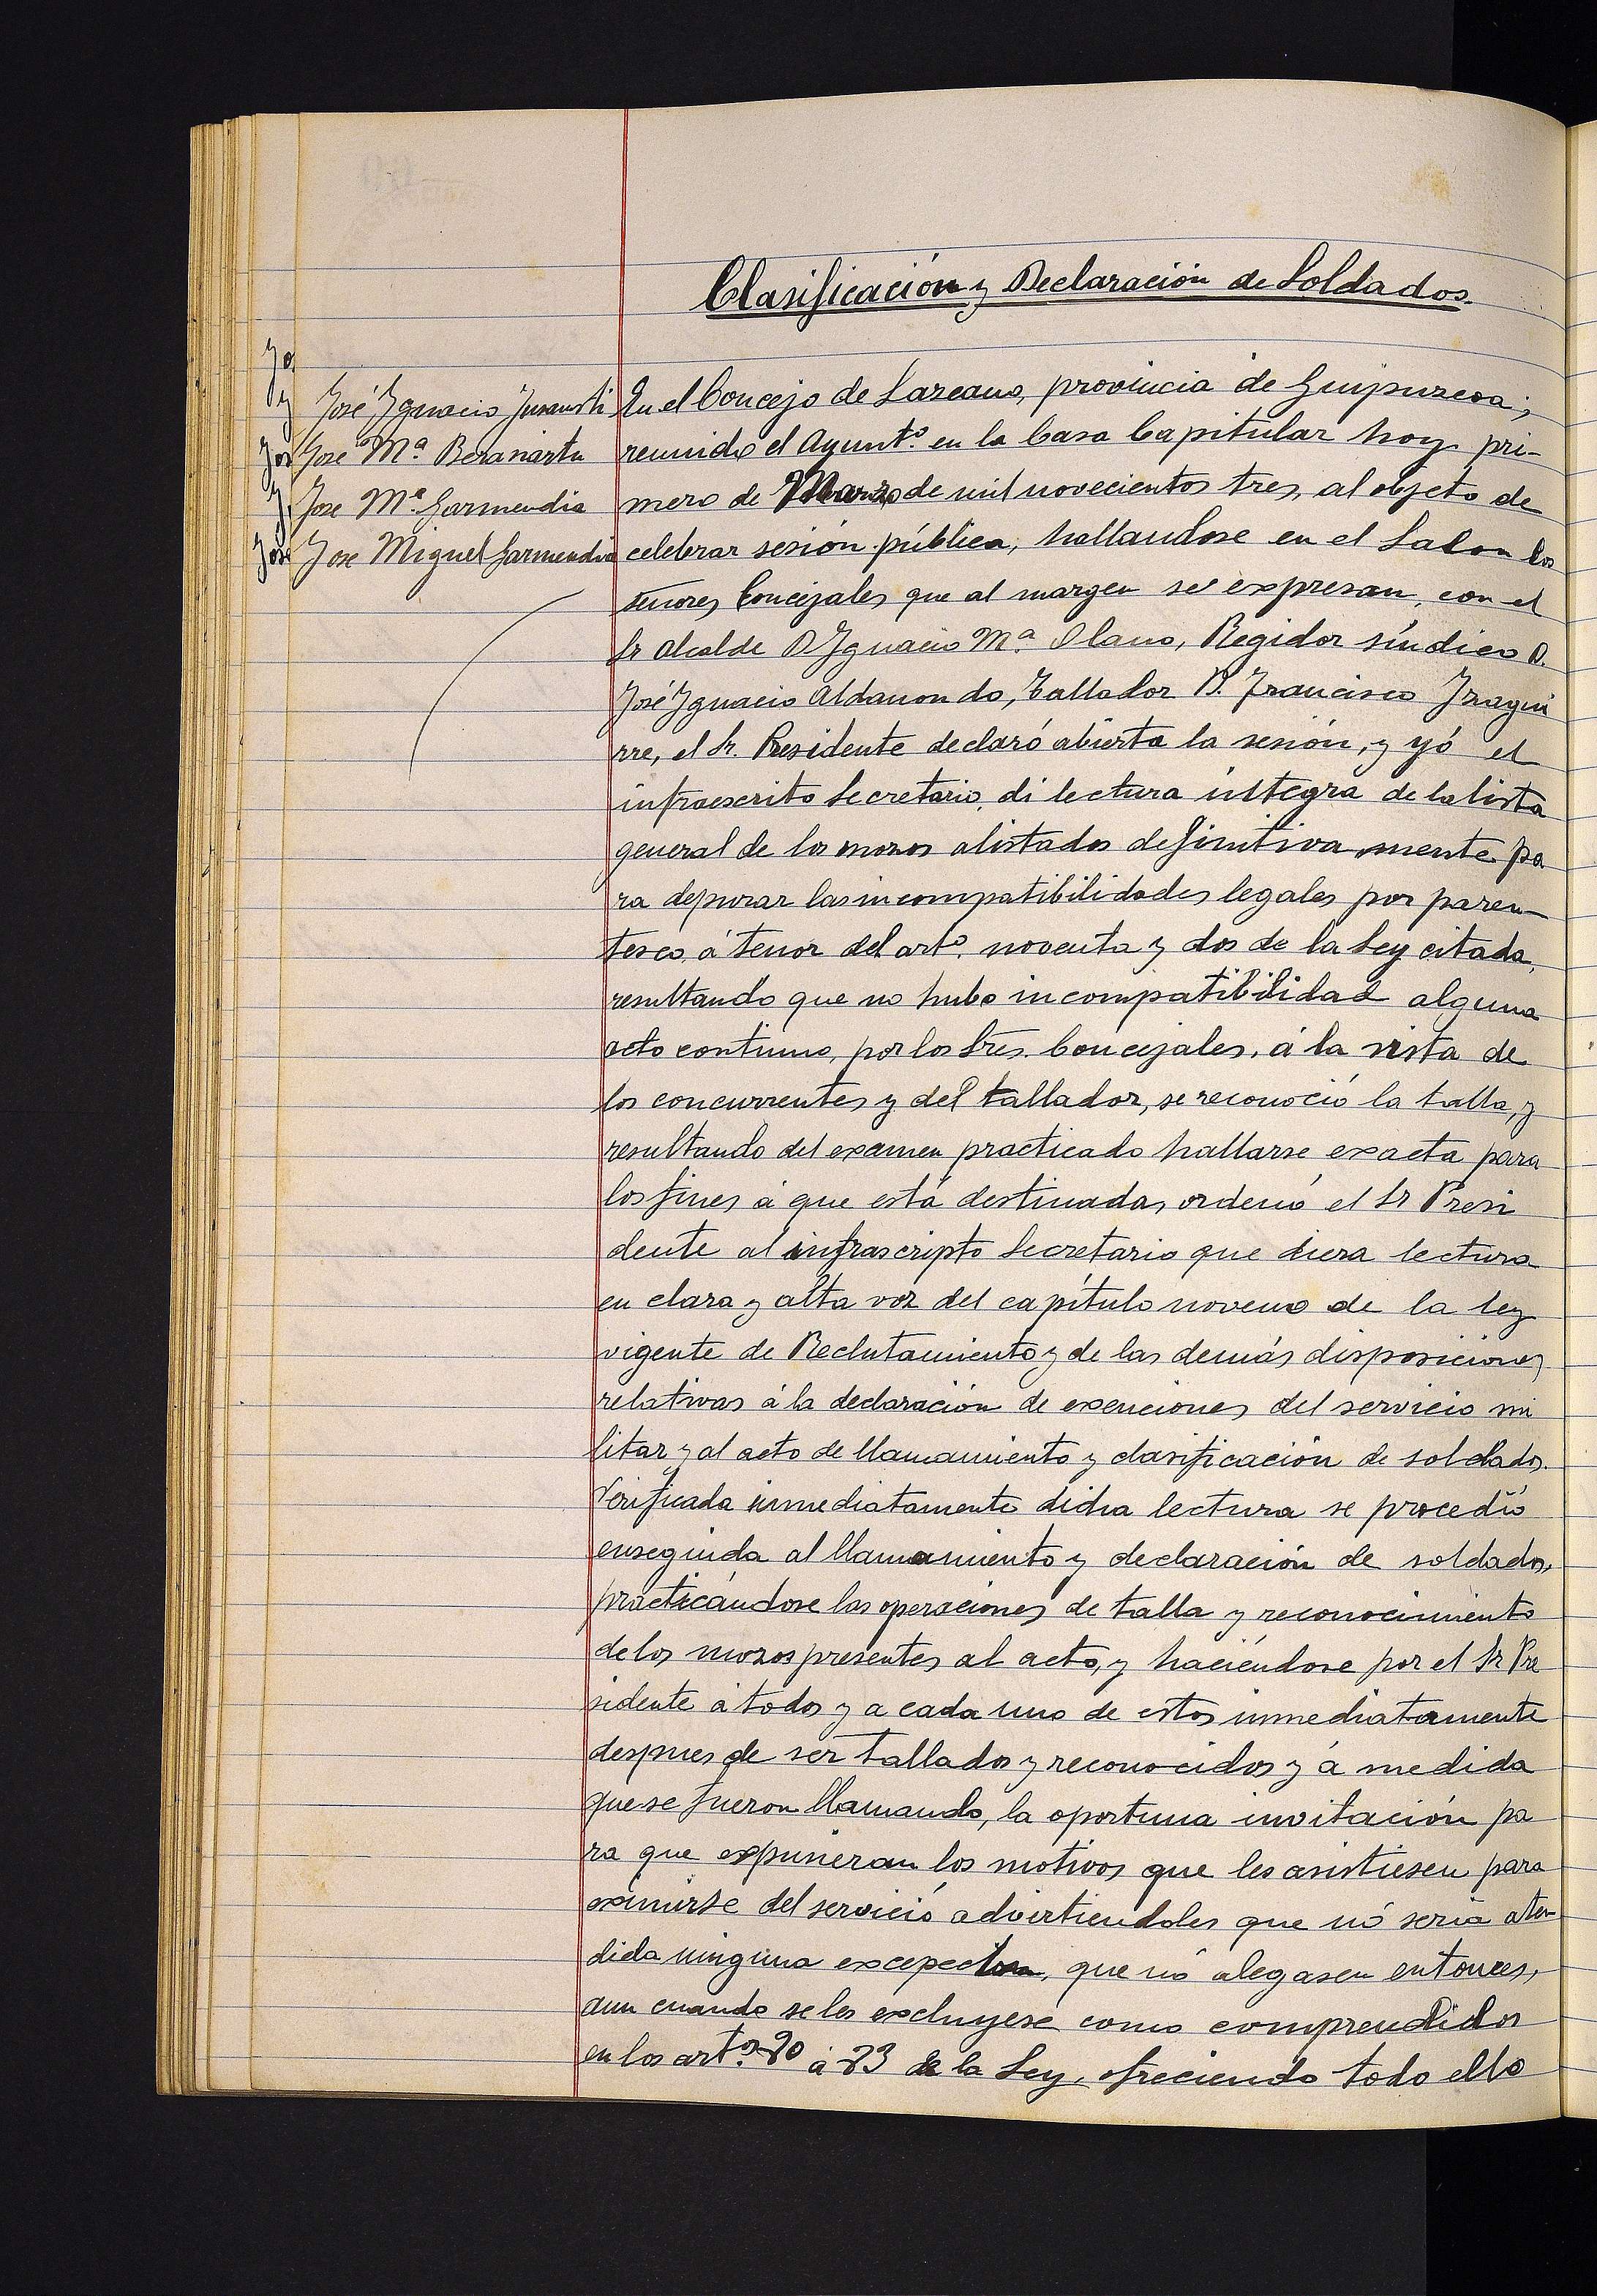 Clasificación y Declaración de Soldados
José Ygnacio Jusansti
José Mª Beranartu
Jose Mª Garmendia
Jose Miguel Garmendia
En el Concejo de Lazcano, provincia de Guipuzcoa;
reunido el Ayuntº. en la Casa Capitular hoy pri-
mero de Marzo de mil novecientos tres, al objeto de
celebrar sesión pública, hallandose en el Salon los
señores Concejales que al margen se expresan, con el
Sr Alcalde D Ygnacio Mª. Olano, Regidor síndico D.
José Ygnacio Aldanondo, Tallador D. Francisco Yzagui
rre, el Sr. Presidente declaró abierta la sesión, y yó el
infraescrito Secretario, di lectura integra de la lista
general de los mozos alistados definitivamente pa
ra depurar las incompatibilidades legales por paren-
tesco, á tenor del artº. noventa y dos de la Ley citada,
resultando que no hubo incompatibilidad alguna
acto continuo, por los Sres. Concejales, á la vista de
los concurrentes y del tallador, se reconoció la talla, y
resultando del examen practicado hallarse exacta para
los fines á que está destinada, ordenó el Sr Presi
dente al infrascripto Secretario que diera lectura
en clara y alta voz del capítulo noveno de la ley
vigente de Reclutamiento y de las demás disposiciones
relativas á la declaración de exenciones del servicio mi
litar y al acto de llamamiento y clasificación de soldados.
Verificada inmediatamente dicha lectura se procedió
enseguida al llamamiento y declaración de soldados,
practicándose las operaciones de talla y reconocimiento
de los mozos presentes al acto, y haciéndose por el Sr Pre
sidente á todos y a cada uno de estos inmediatamente
despues de ser tallados y reconocidos y á medida
que se fueron llamando, la oportuna invitación pa
ra que expusieran los motivos que les asistiesen para
eximirse del servicio advirtiendoles que nó sería aten
dida ninguna excepction, que nó alegasen entonces,
aun cuando se les excluyese como comprendidos
en los artºs. 80 á 83 de la Ley, ofreciendo todo ello